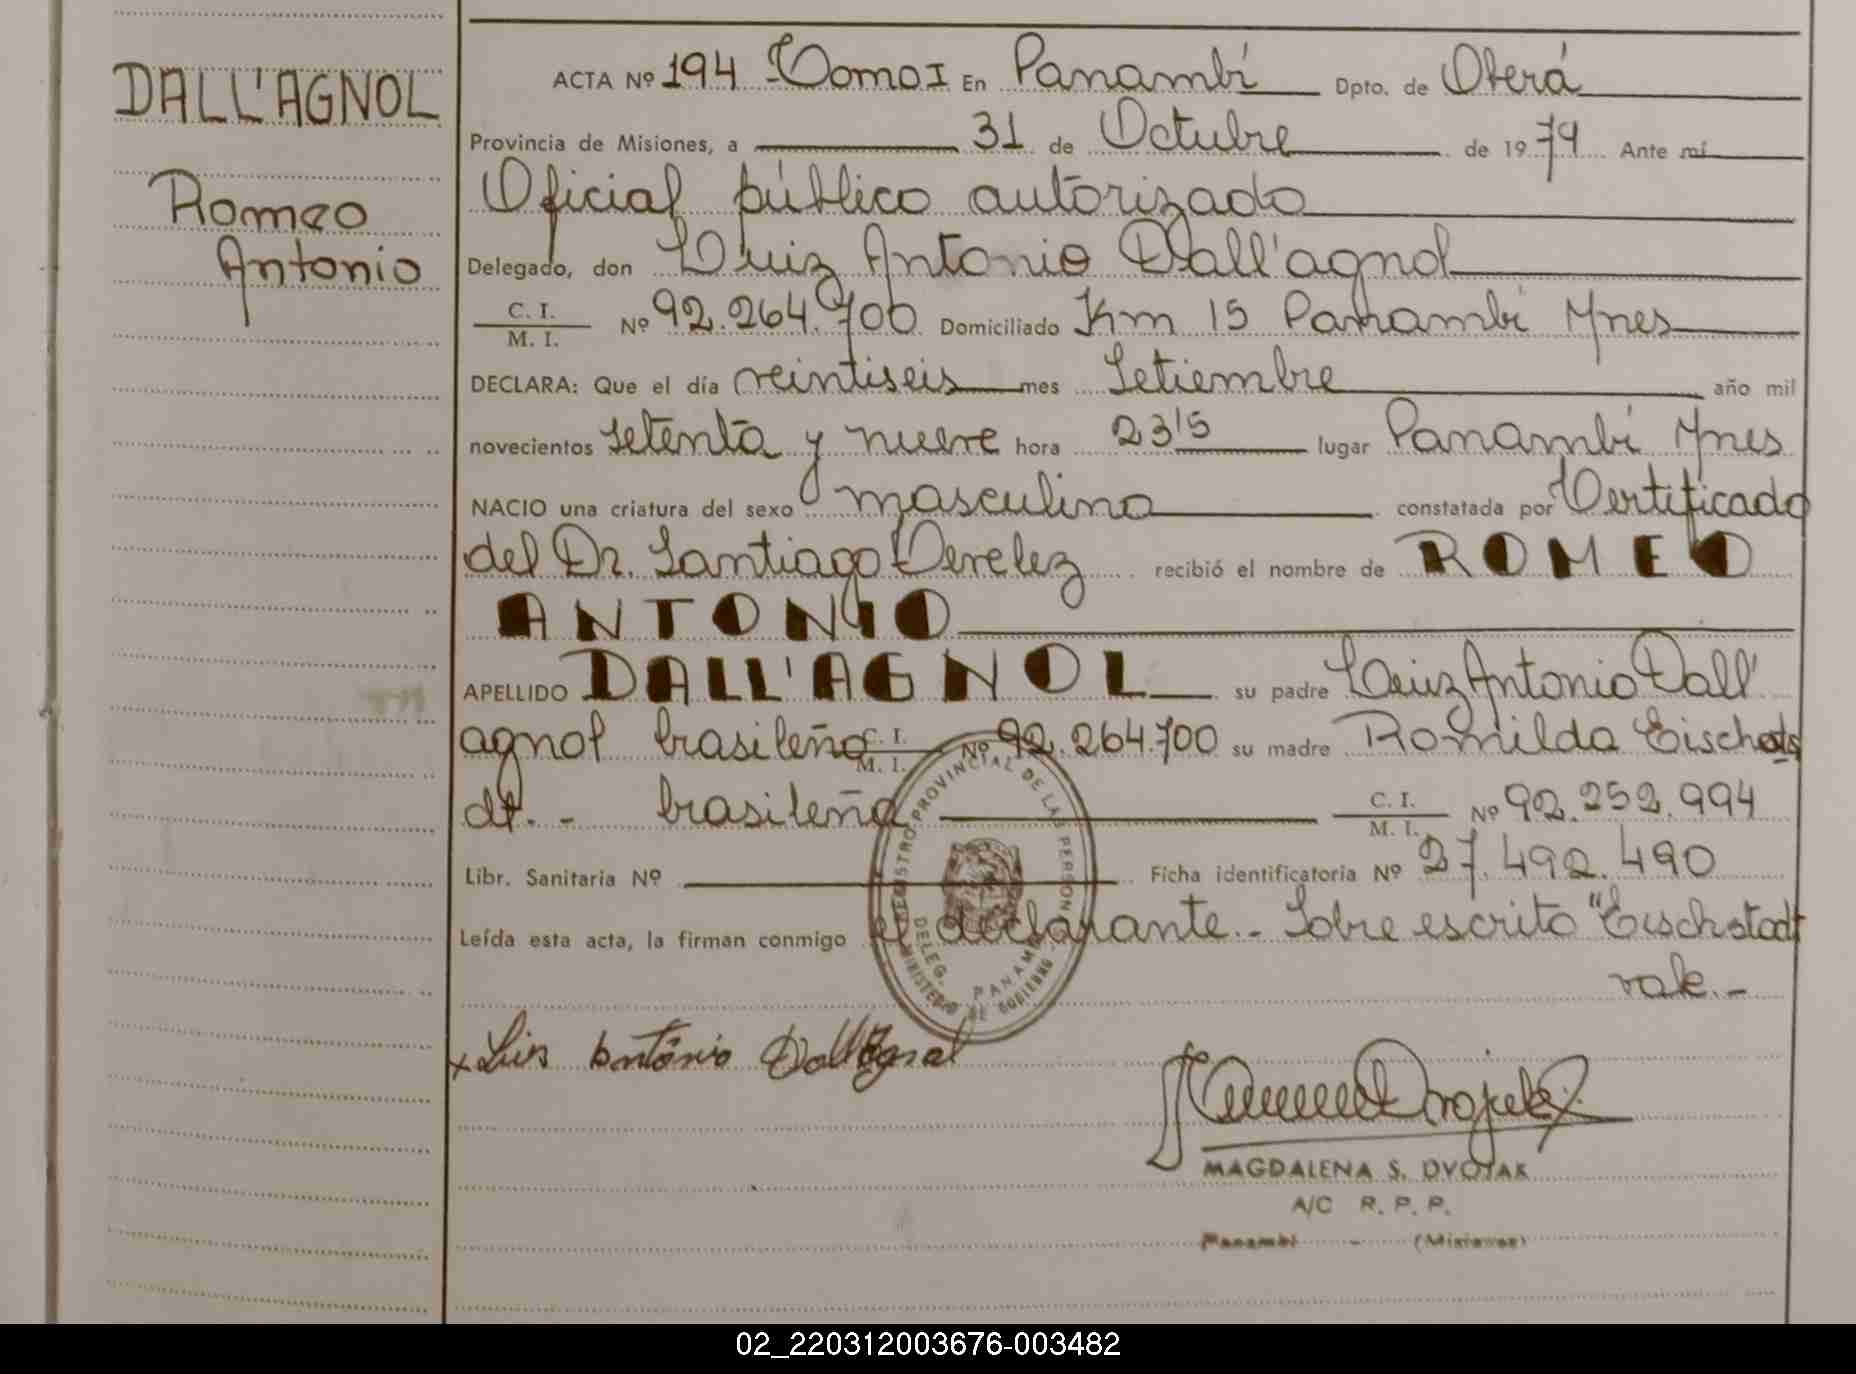 DALL'AGNOL
Romeo
Antonio
ACTA Nº 194 Tomo I En Panambí Dpto. de Oberá
Provincia de Misiones, a 31 de Octubre de 1979 Ante mí
Oficial público autorizado
Delegado, don Luiz Antonio Dall'agnol
C. I.
M. I. Nº 92.264.700 Domiciliado Km 15 Panambí Mnes
DECLARA: Que el día veintiseis mes Setiembre año mil
novecientos setenta y nueve hora 2315 lugar Panambí Mnes
NACIO una criatura del sexo masculino constatada por Certificado
del Dr. Santiago recibió el nombre de ROMEO
ANTONIO
APELLIDO DALL'AGNOL su padre Luiz Antonio Dall'
agnol brasileño C. I. M. I. Nº 92.264.700 su madre Romilda Eischsta
dt.- brasileña C. I. M. I. Nº 92.252.994
Libr. Sanitaria Nº Ficha identificatoria Nº 27.492.490
Leída esta acta, la firman conmigo el declarante.- Sobre escrito "Eischstadt
vale.-
REGISTRO PROVINCIAL DE LAS PERSONAS
DELEG. PANAMBI
MINISTERIO DE GOBIERNO
x Luis Antônio Dall'Agnol
MAGDALENA S. DVOJAK
A/C R. P. P.
Panambí - (Misiones)
02_220312003676-003482